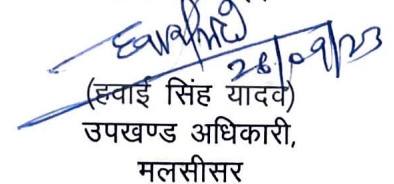 26/09/23
(हवाई सिंह यादव)
उपखण्ड अधिकारी,
मलसीसर